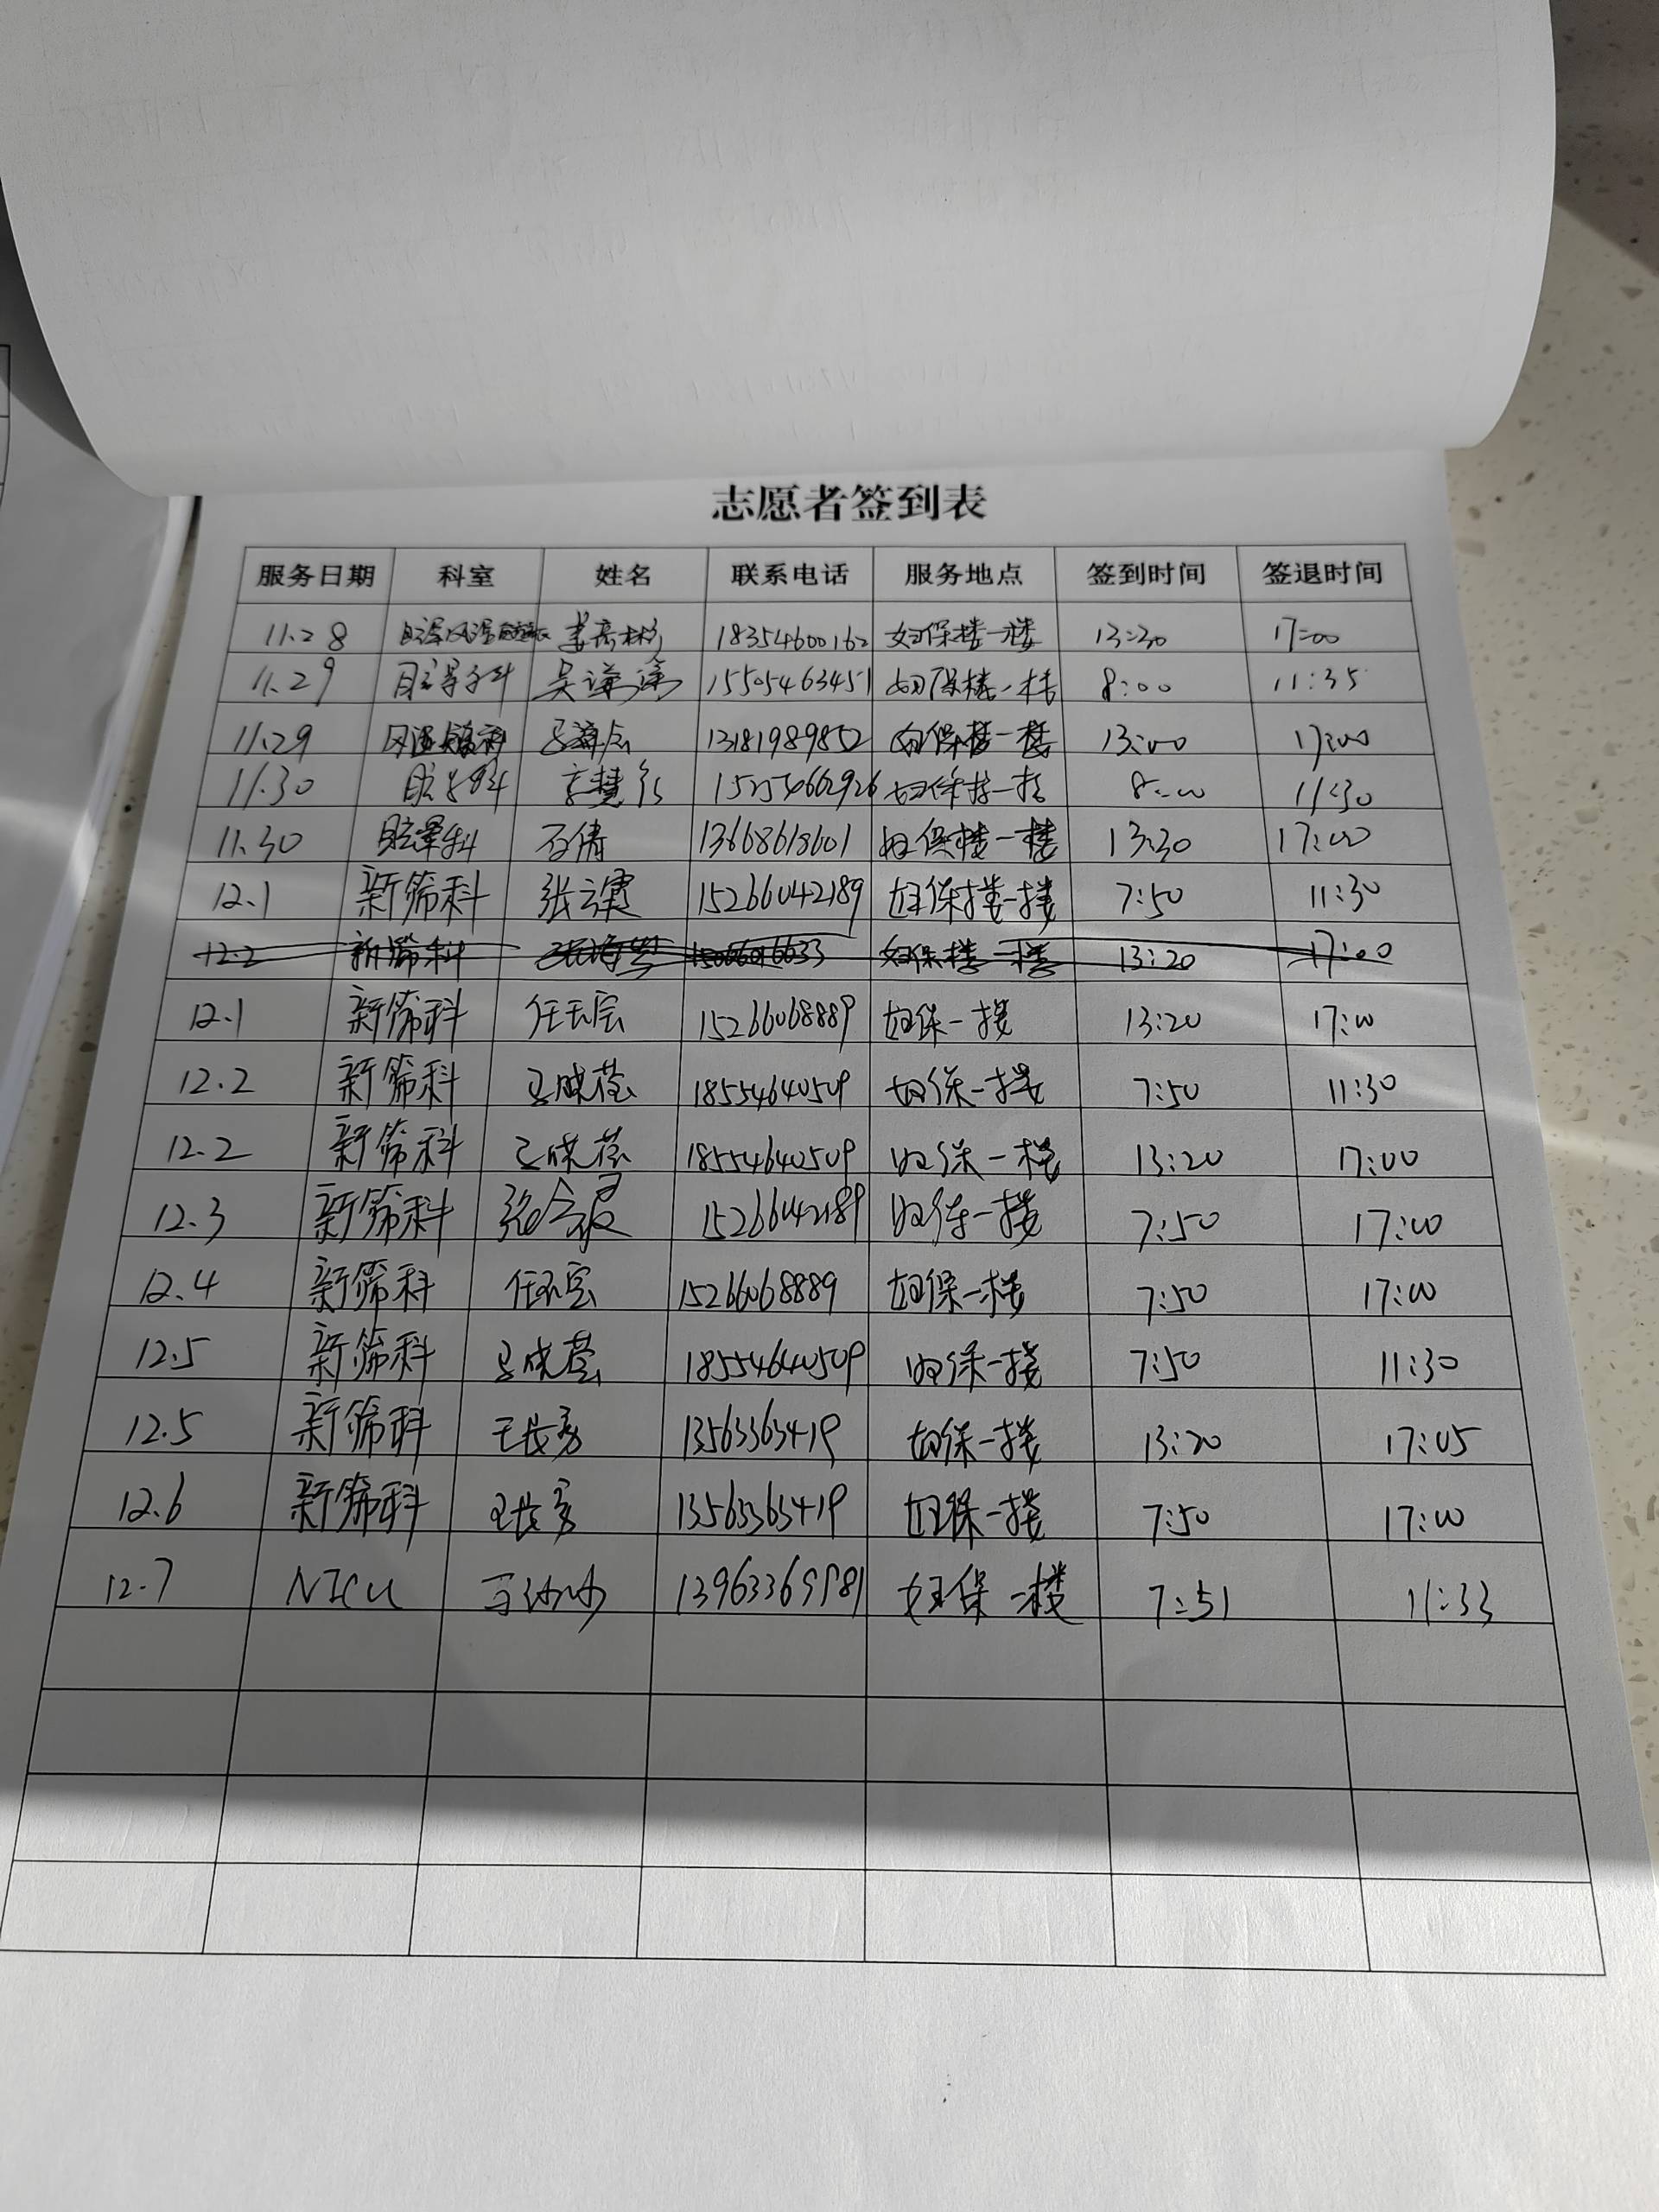 志愿者签到表
服务日期 科室 姓名 联系电话 服务地点 签到时间 签退时间
11.28 18354600162 妇保楼一楼 13:30 17:00
11.29 吴 15505463451 妇保楼一楼 8:00 11:35
11.29 13181989852 妇保楼一楼 13:00 17:00
11.30 妇保楼一楼 8:00 11:30
11.30 石倩 13668618601 妇保楼一楼 13:30 17:00
12.1 新筛科 张 15266042189 妇保楼一楼 7:50 11:30
12.2 新筛科 妇保楼一楼 13:20 17:00
12.1 新筛科 任玉宝 15266068889 妇保一楼 13:20 17:00
12.2 新筛科 王晓蓉 18554640509 妇保一楼 7:50 11:30
12.2 新筛科 王晓蓉 18554640509 妇保一楼 13:20 17:00
12.3 新筛科 张 15266042189 妇保一楼 7:50 17:00
12.4 新筛科 任玉宝 15266068889 妇保一楼 7:50 17:00
12.5 新筛科 王晓蓉 18554640509 妇保一楼 7:50 11:30
12.5 新筛科 王长秀 13563363419 妇保一楼 13:20 17:05
12.6 新筛科 王长秀 13563363419 妇保一楼 7:50 17:00
12.7 NICU 妇保一楼 7:51 11:33